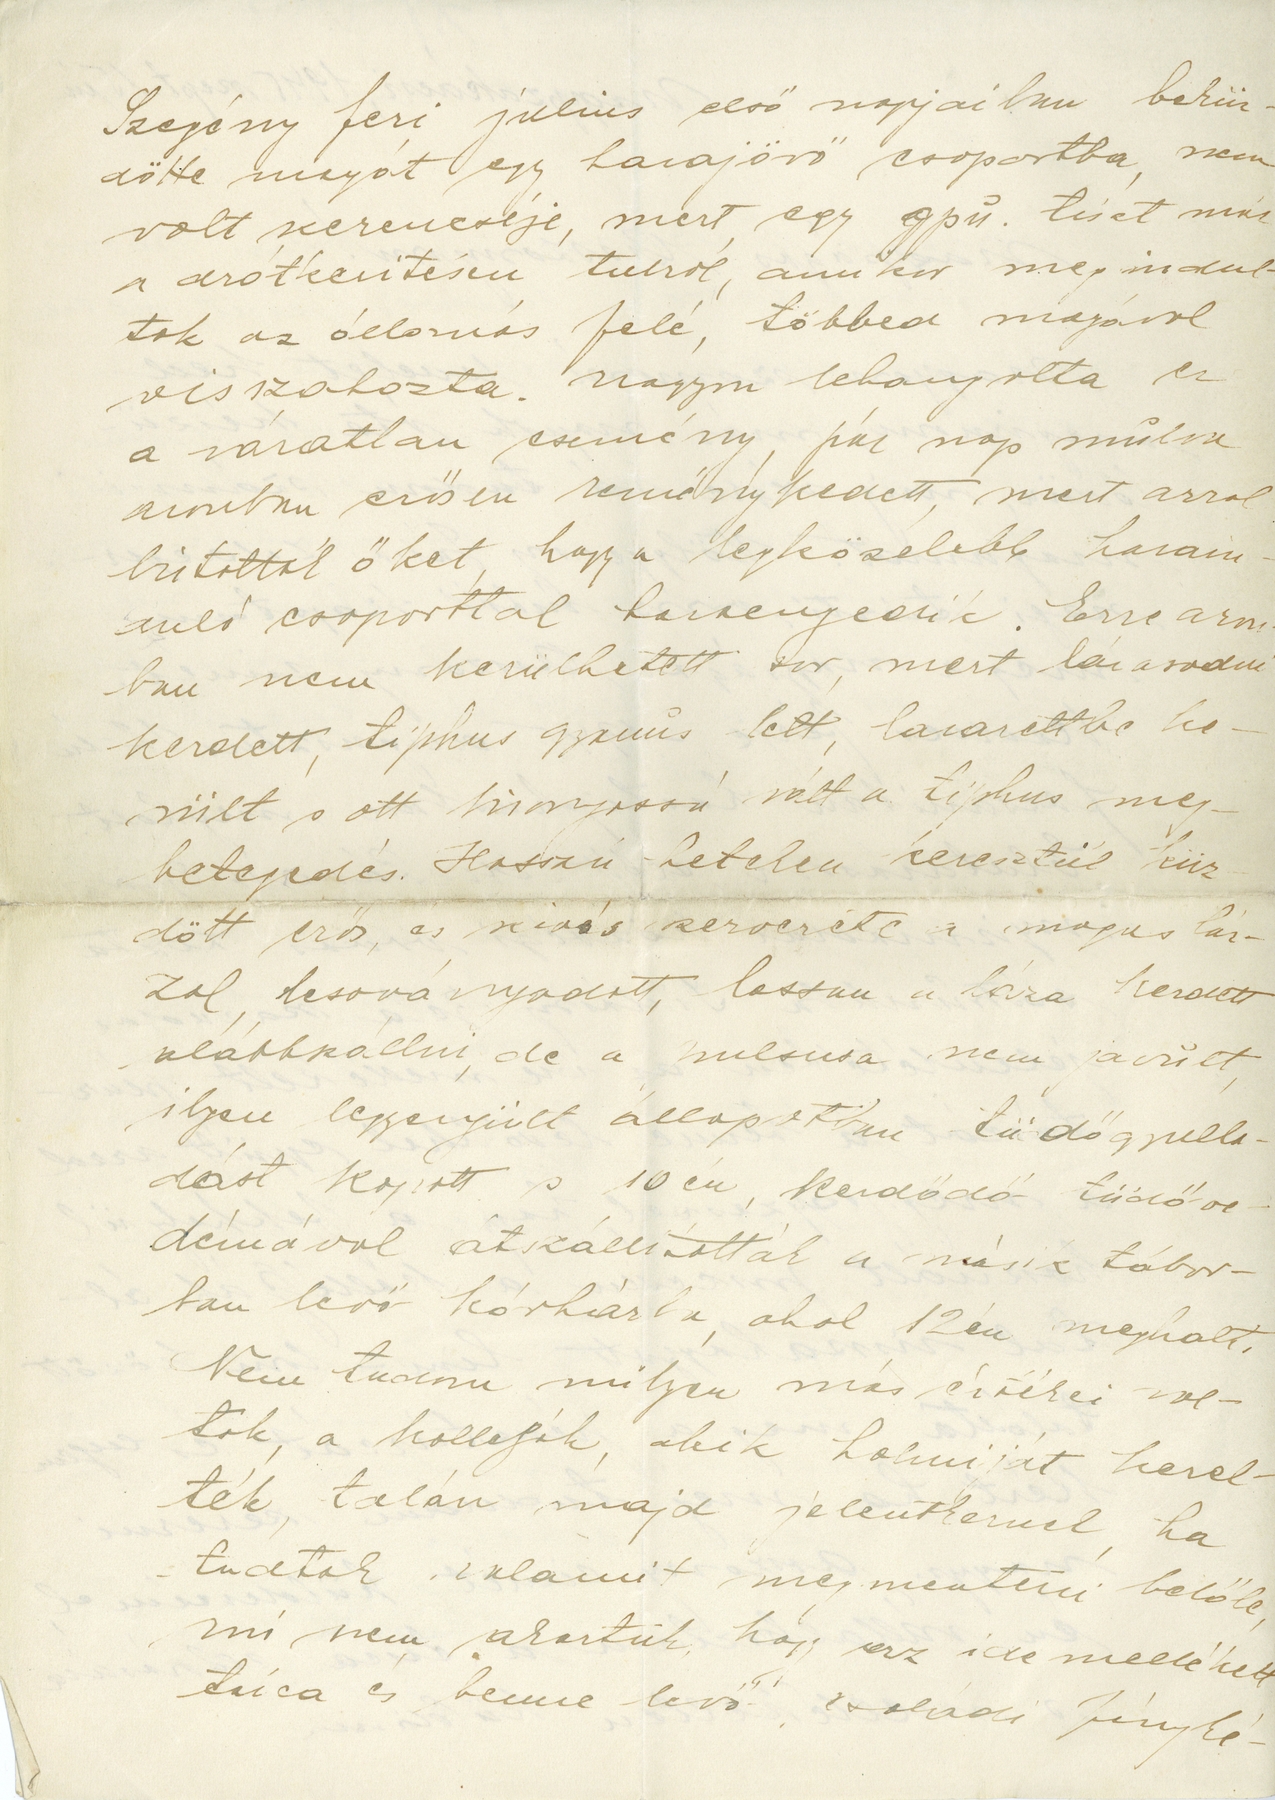 Szegény feri július első napjaiban bekün-
dötte magát egy hazajövő csoportba, nem
volt szerencséje, mert egy gpu. tiszt már
a drótkerítésen tulról, amikor megindul-
tak az állomás felé, többed magával
visszahozta. Nagyon lehangolta ez
a váratlan esemény, pár nap mulva
azonban erősen reménykedett, mert azzal
bíztatták őket, hogy a legközelebb hazain-
duló csoporttal hazaengedik. Erre azon-
ban nem kerülhetett sor, mert lázasodni
kezdett, tiphus gyanús lett, lazarettbe ke-
rült s ott bizonyossá vált a tiphus meg-
betegedés. Hosszú heteken keresztül küz-
dött erős, és szivós szervezete a magas láz-
zal, lesoványodott, lassan a láza kezdett
alábbszállni, de a pulsusa nem javult,
ilyen legyengült állapotban tüdőgyulla-
dást kapott s 10én, kezdődő tüdőoe-
démával átszállították a másik tábor-
ban levő kórházba, ahol 12én meghalt.
Nem tudom milyen más értékei vol-
tak, a kollegák, akik holmiját kezel-
ték, talán majd jelentkeznek, ha
tudtak valamit megmenteni belőle,
mi nem akartuk, hogy az ide mellékelt
tárca és benne levő családi fényké-